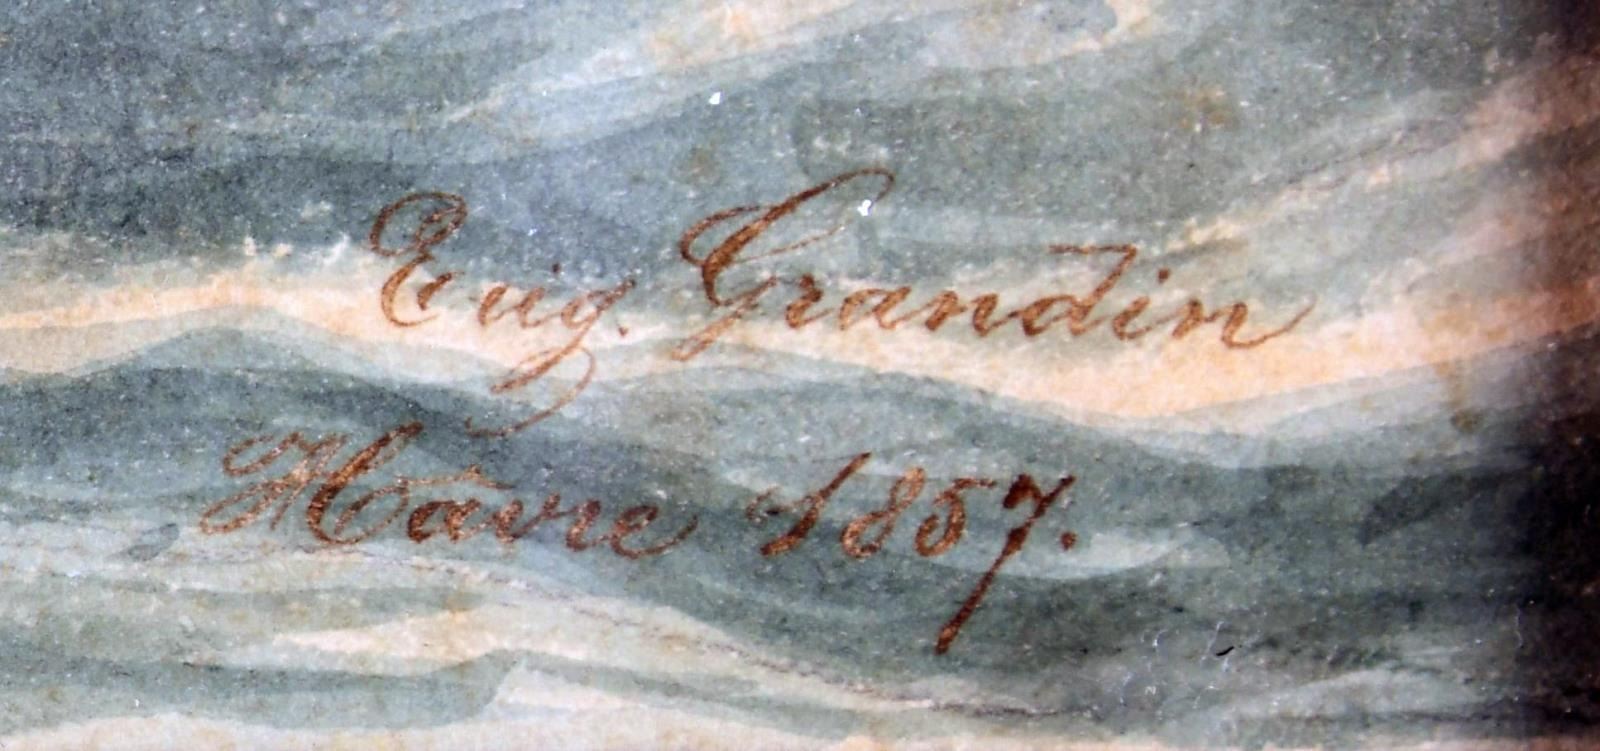 Eug. Grandin
Hâvre 1857.